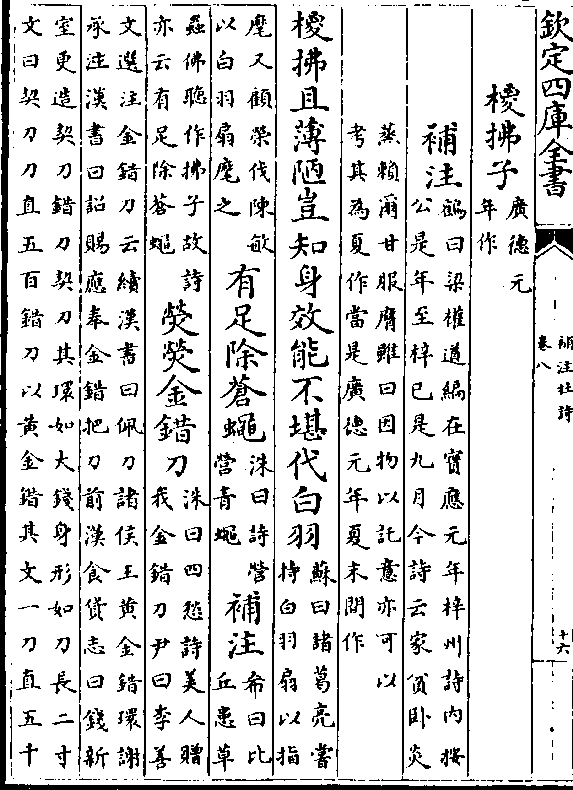 欽定四庫全書
補注杜詩
卷八
十六
椶拂子
廣德元
年作
補注
鶴曰梁權道編在寳應元年梓州詩内按
公是年至梓已是九月今詩云家貧卧炎
蒸賴爾甘服膺雖曰因物以託意亦可以
考其為夏作當是廣德元年夏末閒作
椶拂且薄陋豈知身效能不堪代白羽
蘇曰諸葛亮嘗
持白羽扇以指
麾又顧榮伐陳敏
以白羽扇麾之
有足除蒼蠅
洙曰詩營
營青蠅
補注
希曰比
丘患草
蟲佛聽作拂子故詩
亦云有足除蒼蠅
熒熒金錯刀
洙曰四愁詩美人贈
我金錯刀尹曰李善
文選注金錯刀云續漢書曰佩刀諸侯王黄金錯環謝
承注漢書曰詔賜應奉金錯把刀前漢食貨志曰錢新
室更造契刀錯刀契刀其環如大錢身形如刀長二寸
文曰契刀刀直五百錯刀以黄金錯其文一刀直五千